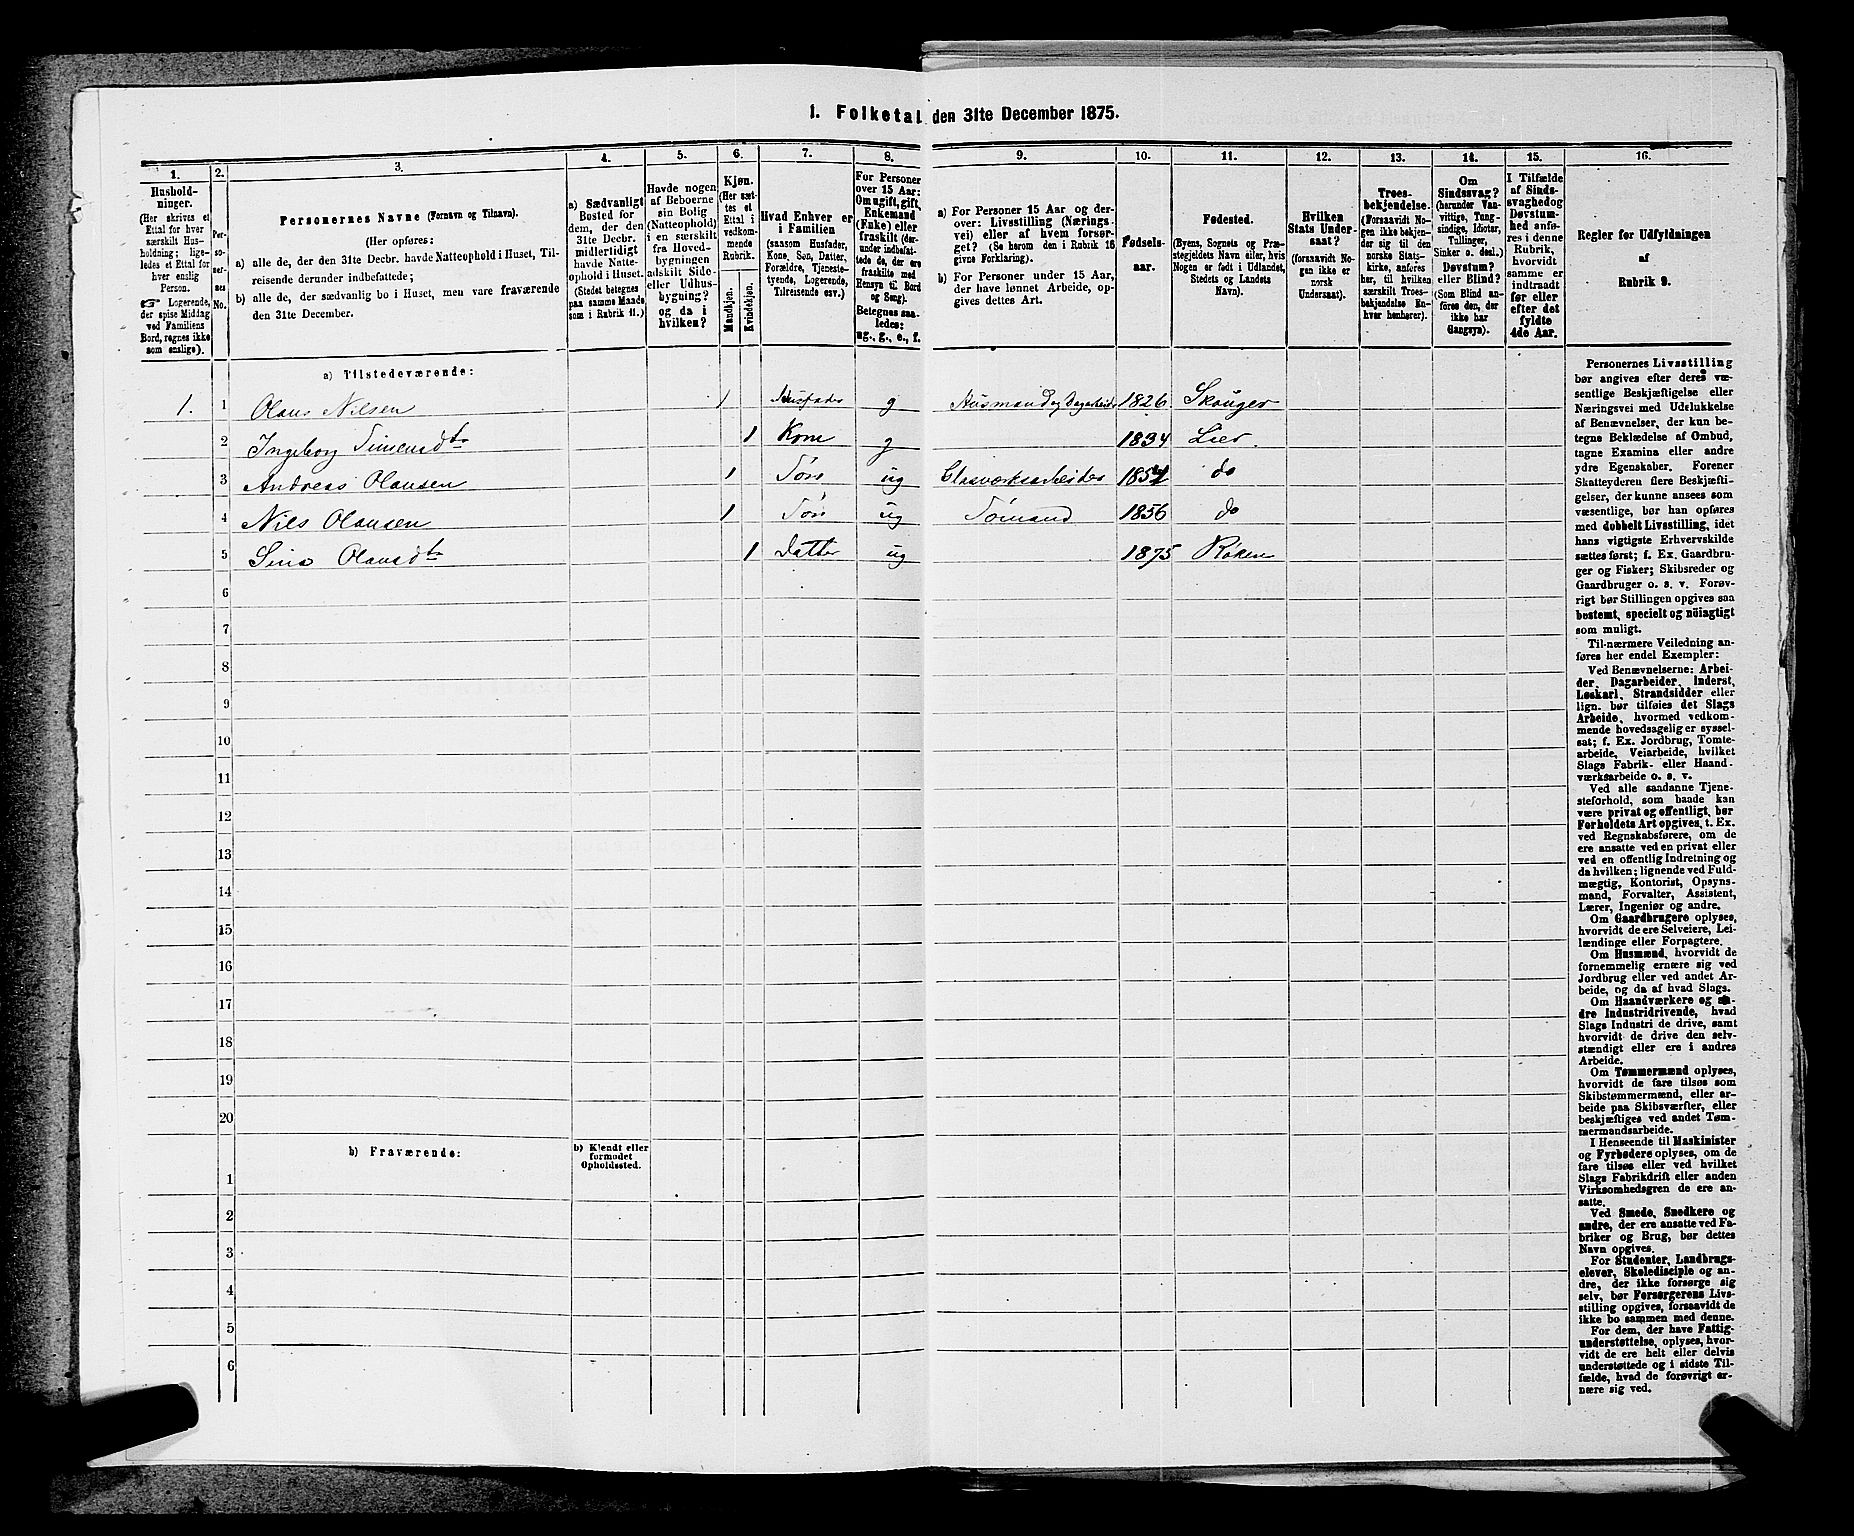 1. Folketal den 31te December 1875.
1. 2. 3. 4. 5. 6. 7. 8. 9. 10. 11. 12. 13. 14. 15. 16.
Hushold-
ninger.
(Her skrives et
Ettal for hver
særskilt Hus-
holdning; lige-
ledes et Ettal for
hver enslig
Person.
☞ Logerende,
der spise Middag
ved Familiens
Bord, regnes ikke
som enslige).
Per-
so-
ner-
nes
No.
Personernes Navne (Fornavn og Tilnavn).
(Her opføres:
a) alle de, der den 31te Decbr. havde Natteophold i Huset, Til-
reisende derunder indbefattede;
b) alle de, der sædvanlig bo i Huset, men vare fraværende
den 31te December.
a) Sædvanligt
Bosted for
dem, der den
31te Decbr.
midlertidigt
havde Natte-
ophold i Huset.
(Stedet betegnes
paa samme Maade
som i Rubrik 11.)
Havde nogen
af Beboerne
sin Bolig
(Natteophold)
i en særskilt
fra Hoved-
bygningen
adskilt Side-
eller Udhus-
bygning?
og da i
hvilken?
Kjøn.
(Her sæt-
tes et
Ettal i
vedkom-
mende
Rubrik.
Mandkjøn.
Kvindekjøn.
Hvad Enhver er
i Familien
(saasom Husfader,
Kone, Søn, Datter,
Forældre, Tjeneste-
tyende, Logerende,
Tilreisende osv.)
For Personer
over 15 Aar:
Om ugift, gift,
Enkemand
(Enke) eller
fraskilt (der-
under indbefat-
tede de, der ere
fraskilte med
Hensyn til Bord
og Seng).
Betegnes saa-
ledes:
ug., g., e., f.
a) For Personer 15 Aar og der-
over: Livsstilling (Nærings-
vei) eller af hvem forsør-
get? (Se herom den i Rubrik 16
givne Forklaring).
b) For Personer under 15 Aar,
der have lønnet Arbeide, op-
gives dettes Art.
Fødsels-
aar.
Fødested.
(Byens, Sognets og Præ-
stegjeldets Navn eller, hvis
Nogen er født i Udlandet,
Stedets og Landets
Navn).
Hvilken
Stats Under-
saat?
(forsaavidt No-
gen ikke er
norsk
Undersaat).
Troes-
bekjendelse.
(Forsaavidt No-
gen ikke bekjen-
der sig til den
norske Stats-
kirke, anføres
her, til hvilken
særskilt Troes-
bekjendelse En-
hver henhører).
Om
Sindssvag?
(herunder Van-
vittige, Tung-
sindige, Idioter,
Tullinger,
Sinker o. desl.)
Døvstum?
eller Blind?
(Som Blind an-
føres den, der
ikke har
Gangsyn).
I Tilfælde
af Sinds-
svaghed og
Døvstum-
hed anfø-
res i denne
Rubrik,
hvorvidt
samme er
indtraadt
før eller
efter det
fyldte
4de Aar.
Regler for Udfyldningen
af
Rubrik 9.
a) Tilstedeværende:
1. 1 Olaus Nilsen 1 Husfader g Husmand og Dagarbeider 1826 Skouger
2 Ingeborg Simensdtr 1 Kone g 1834 Lier.
3 Andreas Olausen 1 Søn ug Glasværksarbeider 1854 do
4 Nils Olausen 1 Søn ug Sømand 1856 do
5 Olausdtr 1 Datter ug 1875 Røken
6
7
8
9
10
11
12
13
14
15
16
17
18
19
20
b) Fraværende:
b) Kjendt eller
formodet
Opholdssted.
1
2
3
4
5
6
Personernes Livsstilling
bør angives efter deres væ-
sentlige Beskjæftigelse eller
Næringsvei med Udelukkelse
af Benævnelser, der kun be-
tegne Beklædelse af Ombud,
tagne Examina eller andre
ydre Egenskaber. Forener
Skatteyderen flere Beskjæfti-
gelser, der kunne ansees som
væsentlige, bør han opføres
med dobbelt Livsstilling, idet
hans vigtigste Erhvervskilde
sættes først; f. Ex. Gaardbru-
ger og Fisker; Skibsreder og
Gaardbruger o. s. v. Forøv-
rigt bør Stillingen opgives saa
bestemt, specielt og nøiagtigt
som muligt.
Til nærmere Veiledning an-
føres her endel Exempler:
Ved Benævnelserne: Arbei-
der, Dagarbeider, Inderst,
Løskarl, Strandsidder eller
lign. bør tilføies det Slags
Arbeide, hvormed vedkom-
mende hovedsagelig er syssel-
sat; f. Ex. Jordbrug, Tomte-
arbeide, Veiarbeide, hvilket
Slags Fabrik- eller Haand-
værksarbeide o. s. v.
Ved alle saadanne Tjene-
steforhold, som baade kan
være privat og offentligt, bør
Forholdets Art opgives, t. Ex.
ved Regnskabsførere, om de
ere ansatte ved en privat eller
ved en offentlig Indretning og
da hvilken; lignende ved Fuld-
mægtig, Kontorist, Opsyns-
mand, Forvalter, Assistent,
Lærer, Ingeniør og andre.
Om Gaardbrugere oplyses,
hvorvidt de ere Selveiere, Lei-
lændinge eller Forpagtere.
Om Husmænd, hvorvidt de
fornemmelig ernære sig ved
Jordbrug eller ved andet Ar-
beide, og da af hvad Slags.
Om Haandværkere og an-
dre Industridrivende, hvad
Slags Industri de drive, samt
hvorvidt de drive den selv-
stændigt eller ere i andres
Arbeide.
Om Tømmermænd oplyses,
hvorvidt de fare tilsøs som
Skibstømmermænd, eller ar-
beide paa Skibsværfter, eller
beskjæftiges ved andet Tøm-
mermandsarbeide.
I Henseende til Maskinister
og Fyrbødere oplyses, om de
fare tilsøs eller ved hvilket
Slags Fabrikdrift eller anden
Virksomhedsgren de ere an-
satte.
Ved Smede, Snedkere og
andre, der ere ansatte ved Fa-
briker og Brug, bør dettes
Navn opgives.
For Studenter, Landbrugs-
elever, Skoledisciple og an-
dre, der ikke forsørge sig
selv, bør Forsørgerens Livs-
stilling opgives, forsaavidt de
ikke bo sammen med denne.
For dem, der have Fattig-
understøttelse, oplyses, hvor-
vidt de ere helt eller delvis
understøttede og i sidste Til-
fælde, hvad de forøvrigt er-
nære sig ved.